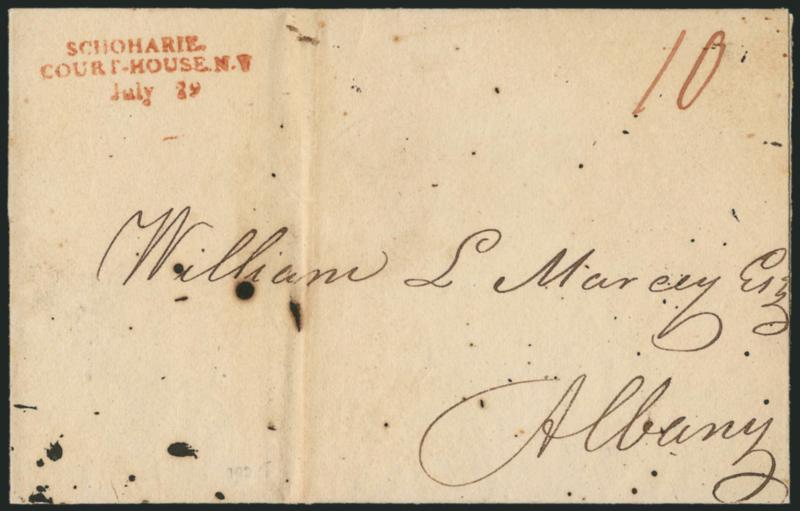 SCHOHARIE.
COURT-HOUSE.N.Y
July 29
10
William L Marcey Esq
Albany